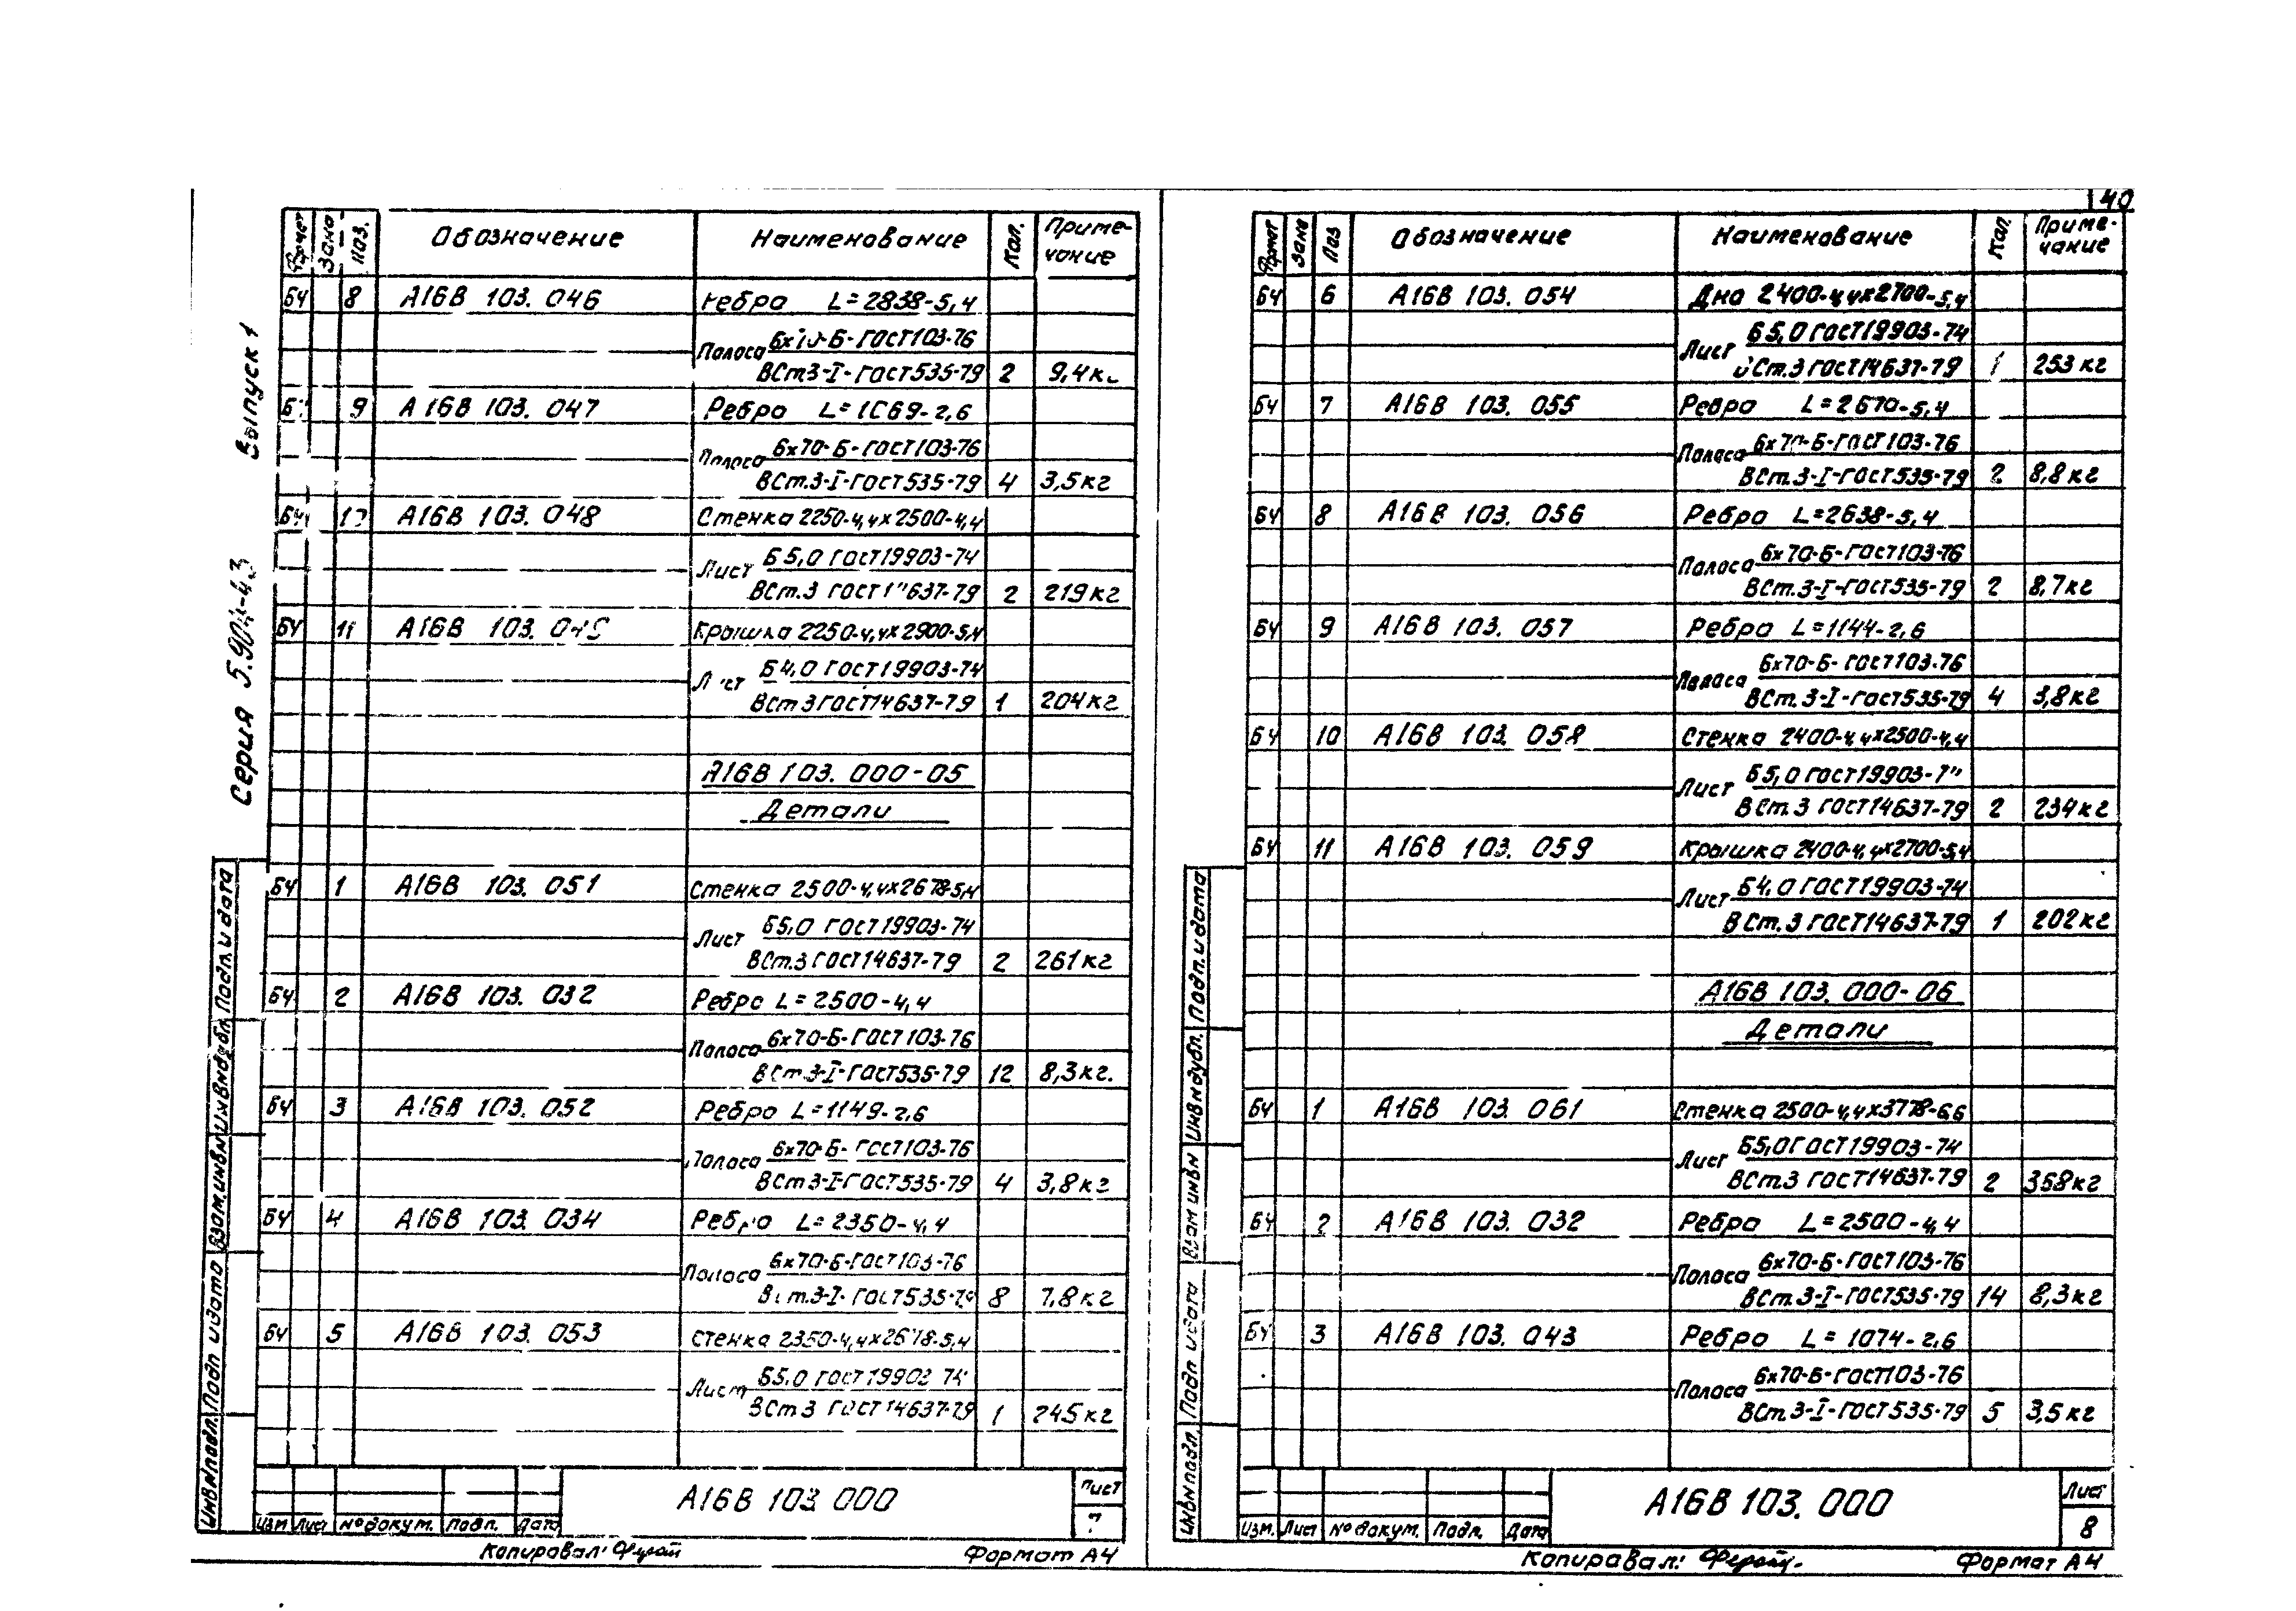 40
Серия 5.904-43 Выпуск 1
Формат Зона Поз. Обозначение Наименование Кол. Приме-
чание
БЧ 8 А16В 103. 046 Ребро L=2838-5,4
Полоса 6х70-Б-ГОСТ103-76
ВСт3-I-ГОСТ535-79 2 9,4кг
БЧ 9 А16В 103. 047 Ребро L=1069-2,6
Полоса 6х70-Б-ГОСТ103-76
ВСт.3-I-ГОСТ535-79 4 3,5кг
БЧ 10 А16В 103. 048 Стенка 2250-4,4х2500-4,4
Лист Б 5,0 ГОСТ19903-74
ВСт.3 ГОСТ14637-79 2 219кг
БЧ 11 А16В 103. 049 Крышка 2250-4,4х2900-5,4
Лист Б 4,0 ГОСТ19903-74
ВСт 3 ГОСТ14637-79 1 204кг
А16В 103. 000-05
Детали
БЧ 1 А16В 103. 051 Стенка 2500-4,4х2678-5,4
Лист Б5,0 ГОСТ19903-74
ВСт.3 ГОСТ14637-79 2 261кг
БЧ 2 А16В 103. 032 Ребро L=2500-4,4
Полоса 6х70-Б-ГОСТ103-76
ВСт.3-I-ГОСТ535-79 12 8,3кг.
БЧ 3 А16В 103. 052 Ребро L=1149-2,6
Полоса 6х70-Б-ГОСТ103-76
ВСт3-I-ГОСТ535-79 4 3,8кг
БЧ 4 А16В 103. 034 Ребро L=2350-4,4
Полоса 6х70-Б-ГОСТ103-76
ВСт.3-I-ГОСТ535-79 8 7,8кг
БЧ 5 А16В 103. 053 Стенка 2350-4,4х2678-5,4
Лист Б5,0 ГОСТ19903-74
ВСт3 ГОСТ14637-79 1 245кг
Инв.№подл. Подп. и дата Взам.инв.№ Инв.№дубл. Подп. и дата
Изм Лист №докум. Подп. Дата
А16В 103. 000
Лист
7
Копировал:
Формат А4
Формат Зона Поз Обозначение Наименование Кол. Приме-
чание
БЧ 6 А16В 103. 054 Дно 2400-4,4х2700-5,4
Лист Б 5,0 ГОСТ19903-74
ВСт.3 ГОСТ14637-79 1 253кг
БЧ 7 А16В 103. 055 Ребро L=2670-5,4
Полоса 6х70-Б-ГОСТ103-76
ВСт.3-I-ГОСТ535-79 2 8,8кг
БЧ 8 А16В 103. 056 Ребро L=2638-5,4
Полоса 6х70-Б-ГОСТ103-76
ВСт.3-I-ГОСТ535-79 2 8,7кг
БЧ 9 А16В 103. 057 Ребро L=1144-2,6
Полоса 6х70-Б-ГОСТ103-76
ВСт.3-I-ГОСТ535-79 4 3,8кг
БЧ 10 А16В 103. 058 Стенка 2400-4,4х2500-4,4
Лист Б5,0 ГОСТ19903-74
ВСт.3 ГОСТ14637-79 2 234кг
БЧ 11 А16В 103. 059 Крышка 2400-4,4х2700-5,4
Лист Б4,0 ГОСТ19903-74
ВСт.3 ГОСТ14637-79 1 202кг
А16В 103. 000-06
Детали
БЧ 1 А16В 103. 061 Стенка 2500-4,4х3778-6,6
Лист Б5,0 ГОСТ19903-74
ВСт.3 ГОСТ14637-79 2 368кг
БЧ 2 А16В 103. 032 Ребро L=2500-4,4
Полоса 6х70-Б-ГОСТ103-76
ВСт.3-I-ГОСТ535-79 14 8,3кг
БЧ 3 А16В 103. 043 Ребро L=1074-2,6
Полоса 6х70-Б-ГОСТ103-76
ВСт.3-I-ГОСТ535-79 5 3,5кг
Инв№подл. Подп и дата Взам инв№ Инв№дубл. Подп. и дата
Изм. Лист №докум. Подп. Дата
А16В 103. 000
Лист
8
Копировал:
Формат А4